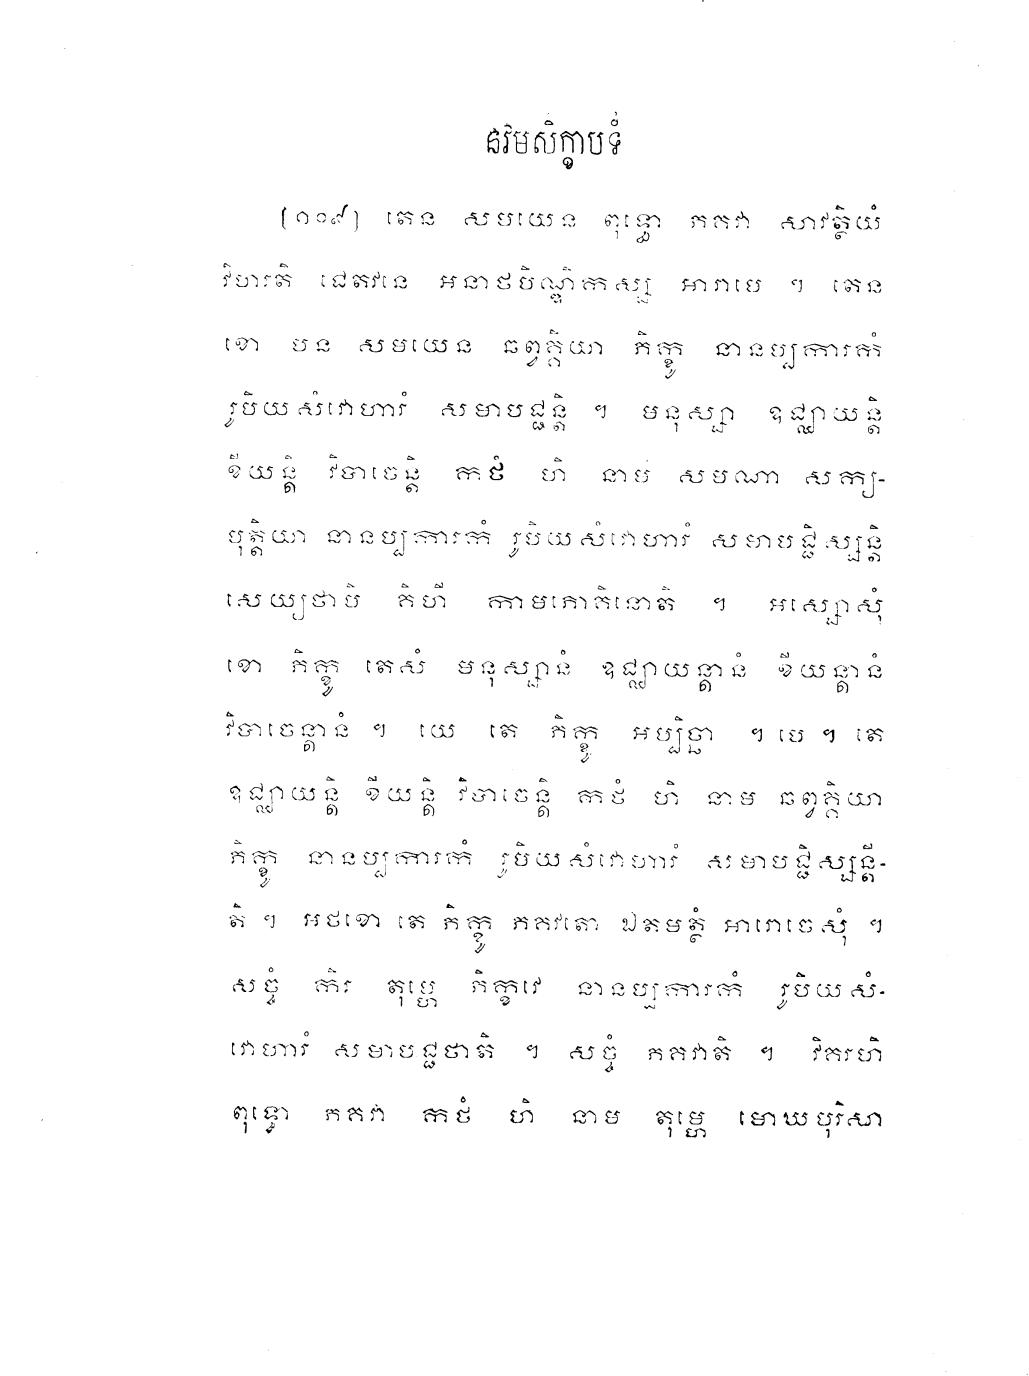 នវមសិក្ខាបទំ
[១១៩] តេន សមយេន ពុទ្ធោ ភគវា សាវត្ថិយំ
វិហរតិ ជេតវនេ អនាថបិណ្ឌិកស្ស អារាមេ ។ តេន
ខោ បន សមយេន ឆព្វគ្គិយា ភិក្ខូ នានប្បការកំ
រូបិយសំវោហារំ សមាបជ្ជន្តិ ។ មនុស្សា ឧជ្ឈាយន្តិ
ខីយន្តិ វិបាចេន្តិ កថំ ហិ នាម សមណា សក្យ-
បុត្តិយា នានប្បការកំ រូបិយសំវោហារំ សមាបជ្ជិស្សន្តិ
សេយ្យថាបិ គិហី កាមភោគិនោតិ ។ អស្សោសុំ
ខោ ភិក្ខូ តេសំ មនុស្សានំ ឧជ្ឈាយន្តានំ ខីយន្តានំ
វិបាចេន្តានំ ។ យេ តេ ភិក្ខូ អប្បិច្ឆា ។ បេ ។ តេ
ឧជ្ឈាយន្តិ ខីយន្តិ វិបាចេន្តិ កថំ ហិ នាម ឆព្វគ្គិយា
ភិក្ខូ នានប្បការកំ រូបិយសំវោហារំ សមាបជ្ជិស្សន្តី-
តិ ។ អថខោ តេ ភិក្ខូ ភគវតោ ឯតមត្ថំ អារោចេសុំ ។
សច្ចំ កិរ តុម្ហេ ភិក្ខវេ នានប្បការកំ រូបិយសំ-
វោហារំ សមាបជ្ជថាតិ ។ សច្ចំ ភគវាតិ ។ វិគរហិ
ពុទ្ធោ ភគវា កថំ ហិ នាម តុម្ហេ មោឃបុរិសា